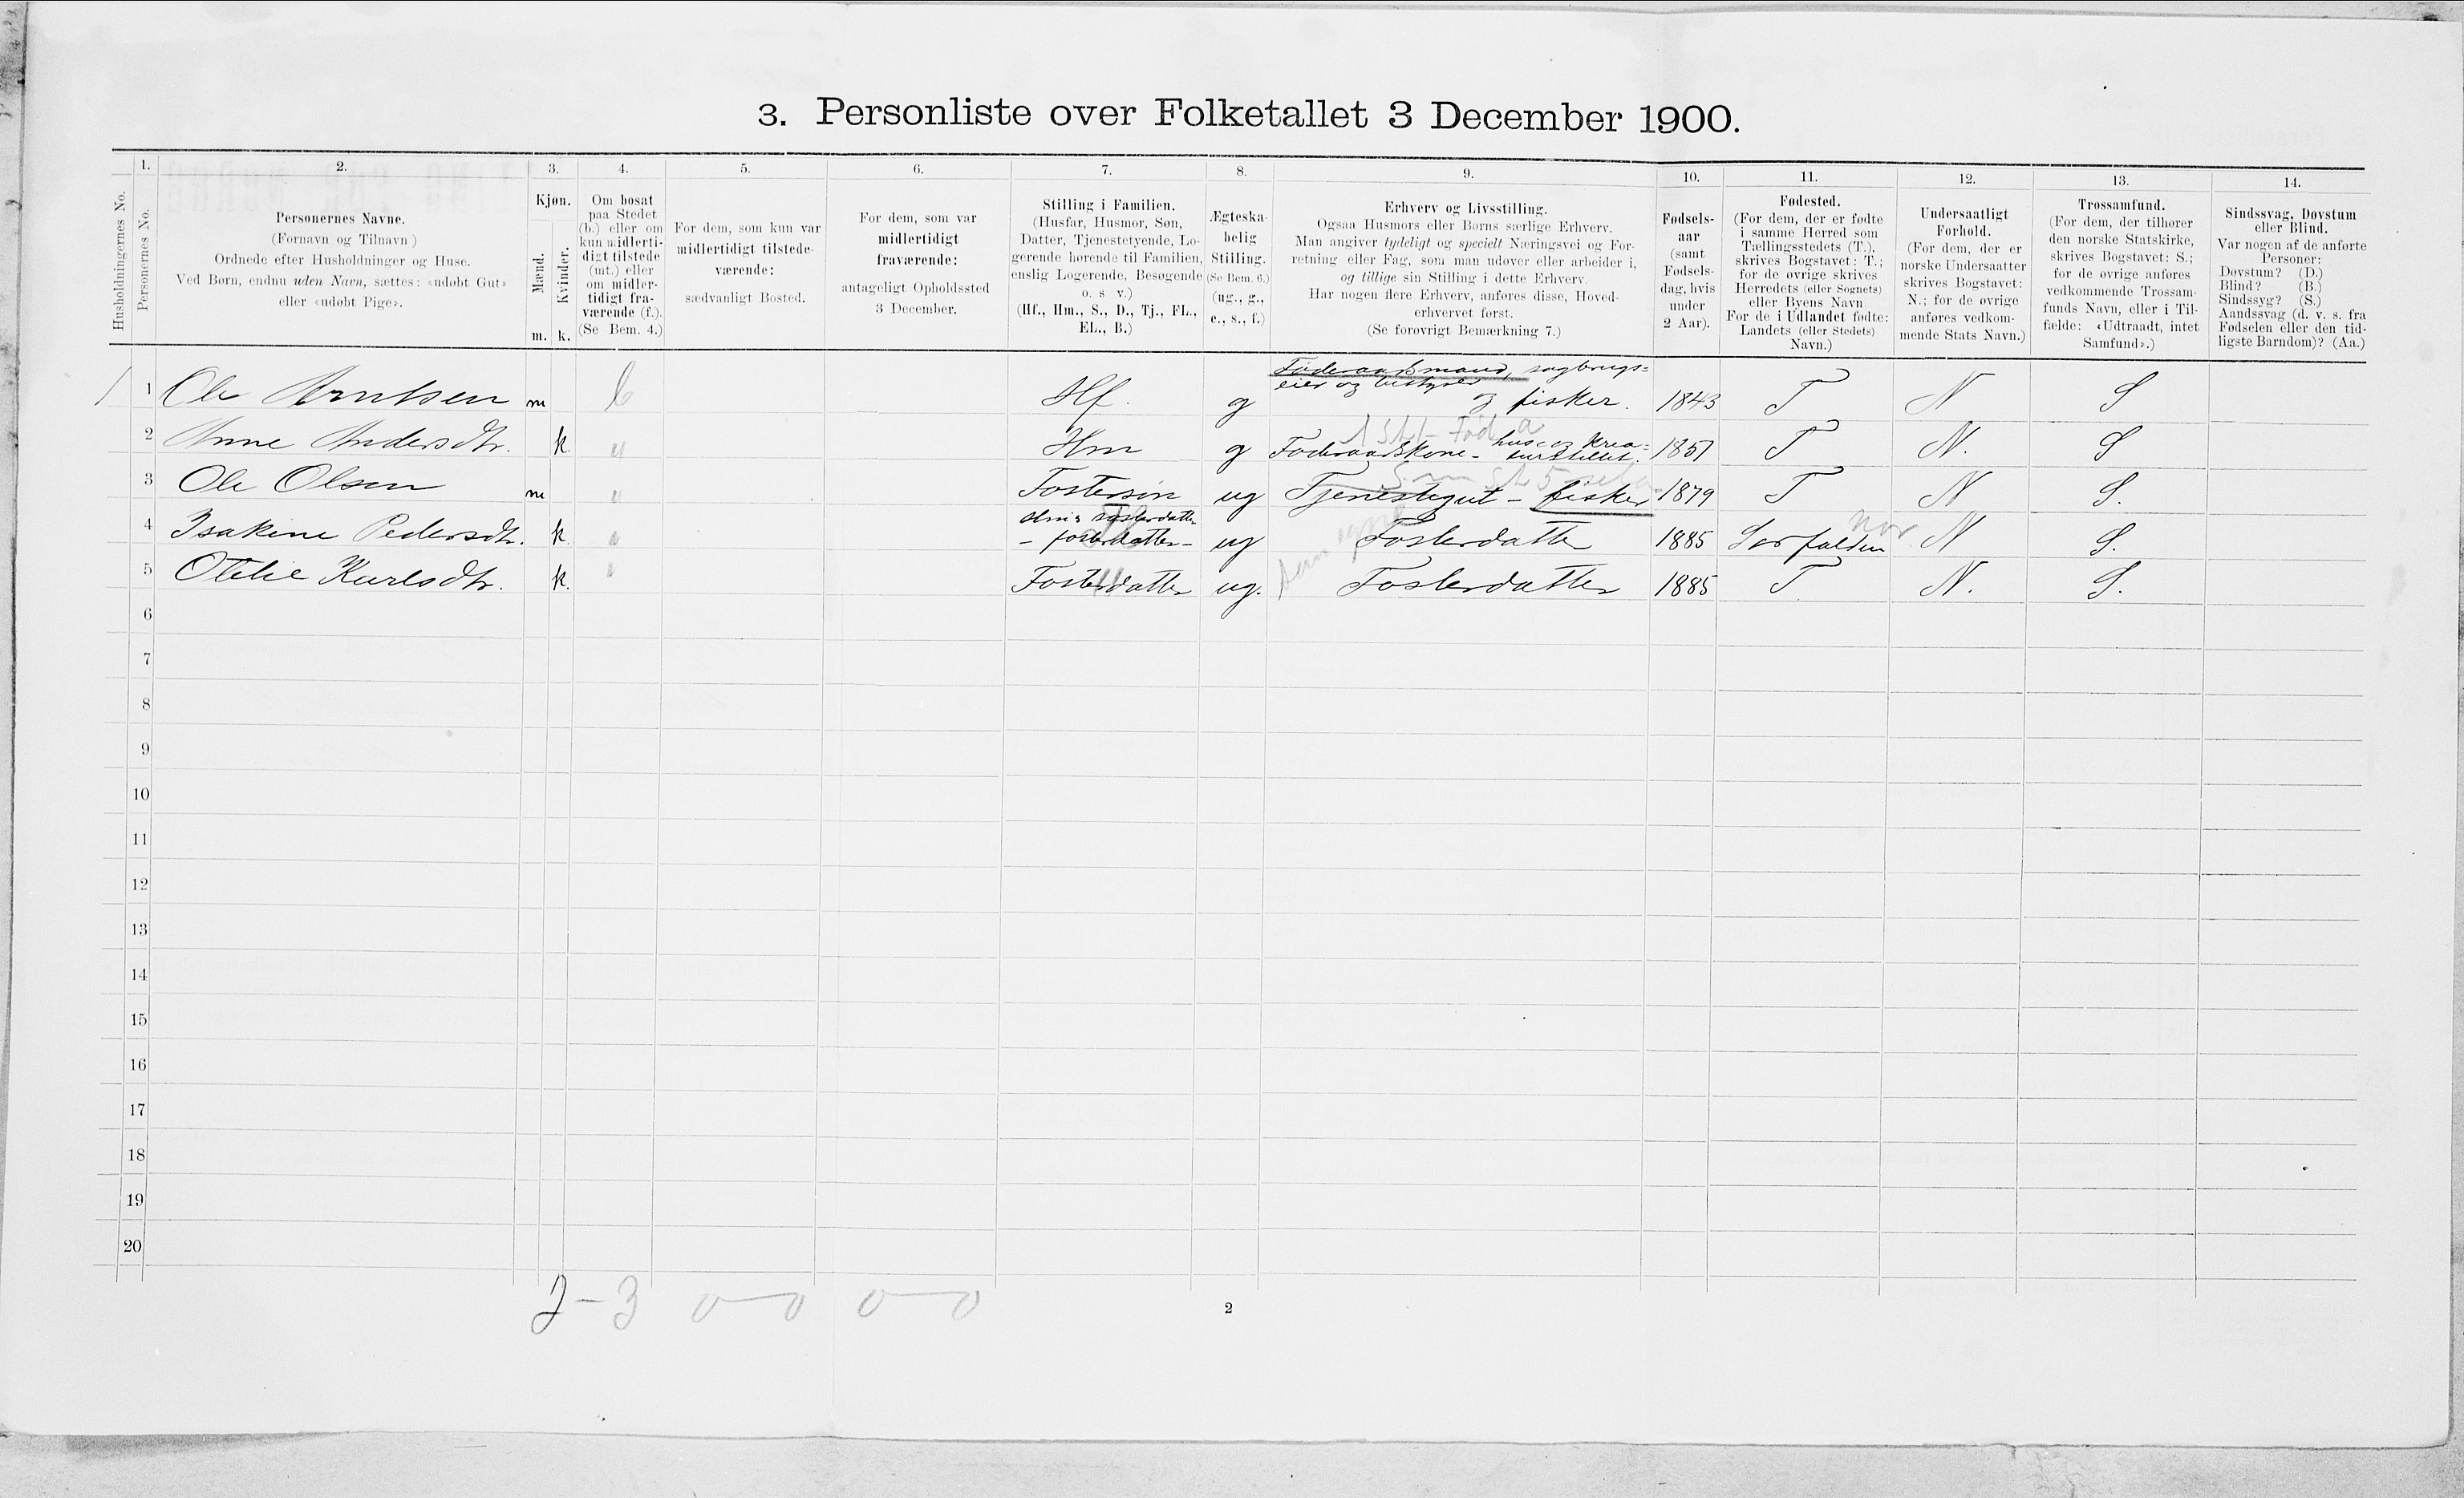 3. Personliste over Folketallet 3 December 1900.
Husholdningernes No.
1.
Personernes No.
2.
Personernes Navne.
(Fornavn og Tilnavn)
Ordnede efter Husholdninger og Huse.
Ved Børn, endnu uden Navn, sættes: «udøbt Gut»
eller «udøbt Pige».
3.
Kjøn.
Mænd.
Kvinder.
m. k.
4.
Om bosat
paa Stedet
(b.) eller om
kun midlerti-
digt tilstede
(mt.) eller
om midler-
tidigt fra-
værende (f.).
(Se Bem. 4.)
5.
For dem, som kun var
midlertidigt tilstede-
værende:
sædvanligt Bosted.
6.
For dem, som var
midlertidigt
fraværende:
antageligt Opholdssted
3 December.
7.
Stilling i Familien.
(Husfar, Husmor, Søn,
Datter, Tjenestetyende, Lo-
gerende hørende til Familien,
enslig Logerende, Besøgende
o. s v.)
(Hf., Hm., S., D., Tj., FL.,
EL., B.)
8.
Ægteska-
belig
Stilling.
(Se Bem. 6.)
(ug., g.,
e., s., f.)
9.
Erhverv og Livsstilling.
Ogsaa Husmors eller Børns særlige Erhverv.
Man angiver tydeligt og specielt Næringsvei og For-
retning eller Fag, som man udøver eller arbeider i,
og tillige sin Stilling i dette Erhverv.
Har nogen flere Erhverv, anføres disse, Hoved-
erhvervet først.
(Se forøvrigt Bemærkning 7.)
10.
Fødsels-
aar
(samt
Fødsels-
dag, hvis
under
2 Aar).
11.
Fødested.
(For dem, der er fødte
i samme Herred som
Tællingsstedets (T.),
skrives Bogstavet: T.;
for de øvrige skrives
Herredets (eller Sognets)
eller Byens Navn.
For de i Udlandet fødte:
Landets (eller Stedets)
Navn.)
12.
Undersaatligt
Forhold.
(For dem, der er
norske Undersaatter
skrives Bogstavet:
N.; for de øvrige
anføres vedkom-
mende Stats Navn.)
13.
Trossamfund.
(For dem, der tilhører
den norske Statskirke,
skrives Bogstavet: S.;
for de øvrige anføres
vedkommende Trossam-
funds Navn, eller i Til-
fælde: «Udtraadt, intet
Samfund».)
14.
Sindssvag, Døvstum
eller Blind.
Var nogen af de anførte
Personer:
Døvstum? (D.)
Blind? (B.)
Sindssyg? (S.)
Aandssvag (d. v. s. fra
Fødselen eller den tid-
ligste Barndom)? (Aa.)
1 Ole Arntsen m b Hf. g Føderaadsmand, sagbrugs=
eier og bestyrer
og fisker. 1843 T N S
2 Anne Andersdtr. k " Hm g Føderaadskone - hus- og krea=
turstellet. 1857 T N. S
3 Ole Olsen m " Fostersøn ug Tjenestegut - fisker 1879 T N S.
4 Isakine Pedersdtr. k " - fosterdatter - ug Fosterdatter 1885 Sørfolden N S.
5 Otelie Karlsdtr. k. " Fosterdatter ug. Fosterdatter 1885 T N. S.
6
7
8
9
10
11
12
13
14
15
16
17
18
19
20
2 - 3 0 - 0 0 - 0
2